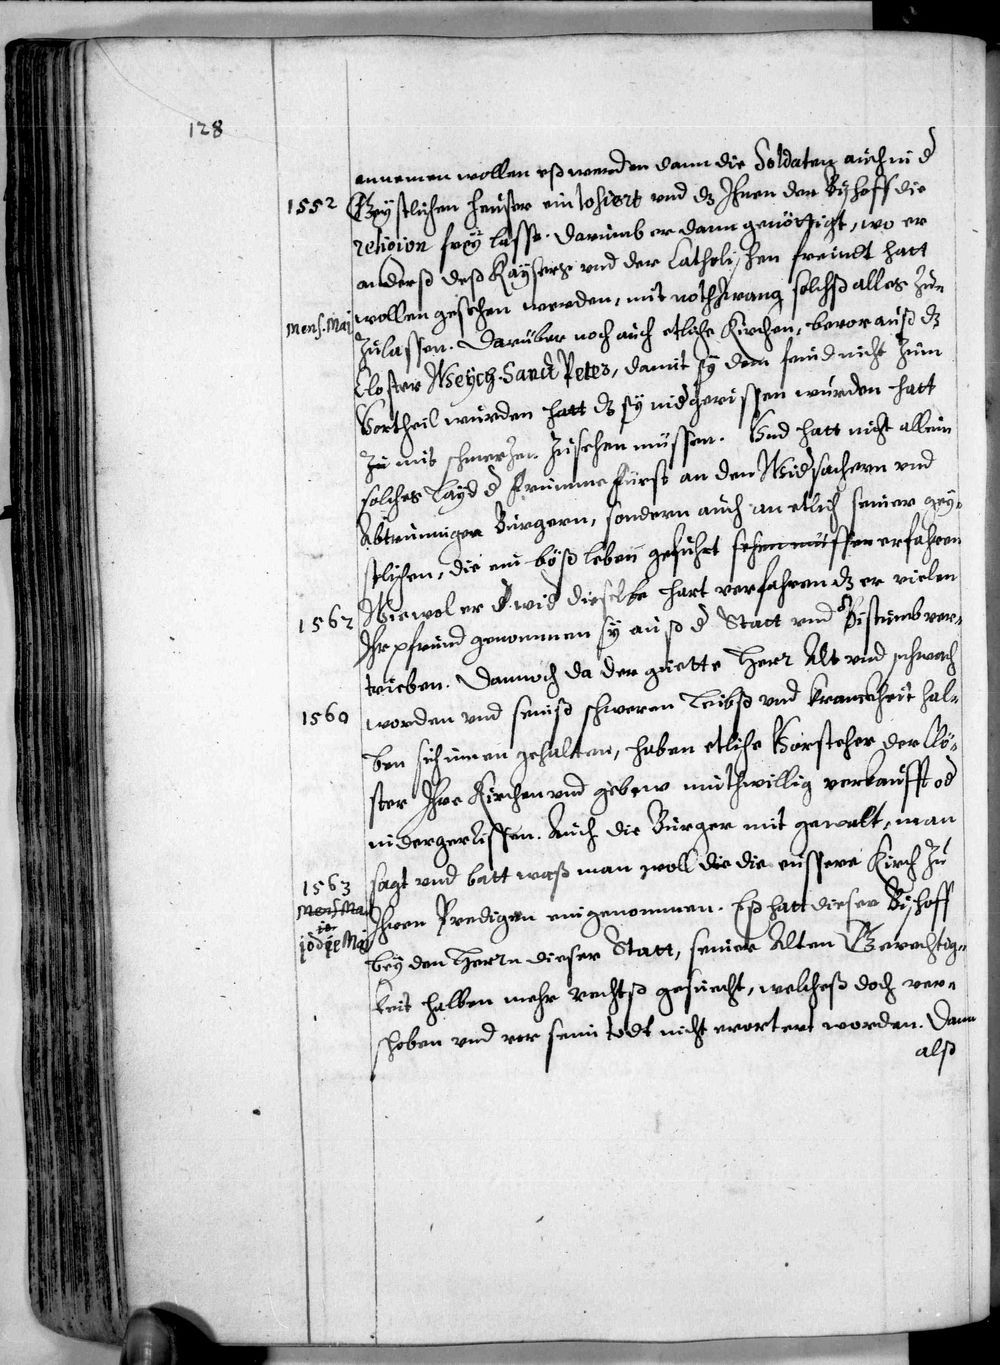 128
annemen wollen eß werden dann die Soldaten auch in d
1552 Geystlichen heuser ein losiert vnd dz Ihnen der Bischoff die
religion frey lasse. Darumb er dann genöttigt, wo er
anderß deß Kaysers vnd der Catholischen freindt hatt
wollen gesehen werden, mit nothzwang solchß alles zu-
Mens. Maj zulassen. Darüber noch auch etliche Kirchen, bevorauß dz
Closter Weych. Sanct Peter, damit sy dem feind nicht zum
Vortheil wurden hatt dz sy nidgerissen wurden hatt
zu mit schmerzen zusehen müssen. Vnd hatt nicht allein
solches layd d frumme Fürst an den Widsachern vnd
Abtrünnigen Burgern, sondern auch an etlich seiner gey-
stlichen, die ein böß leben gefuhrt sehen müssen erfahren
1562 Wiewol er wid dieselbe hart verfahren dz er vielen
Ihr pfrund genommen sy auß d Statt vnd Bistumb ver-
trieben. Dannoch da der guette Herr Alt vnd schwach
1560 worden vnd seines schweren Leibß vnd kranckheit hal-
ben sich innen gehalten, haben etliche Vorsteher der Clö-
ster Ihre Kirchen vnd gebew muthwillig verkaufft od
nidergerissen. Auch die Burger mit gewalt, man
1563 sagt vnd batt waß man woll die die eussere Kirch zu
Mens. Ma Ihren Predigen eingenommen. Eß hatt dieser Bischoff
Maj bey den Herrn dieser Statt, seiner Alten Gerechtig-
keit halben mehr rechtß gesuecht, welcheß doch ver-
schoben vnd vor sein todt nicht erortert worden. Dann
alß